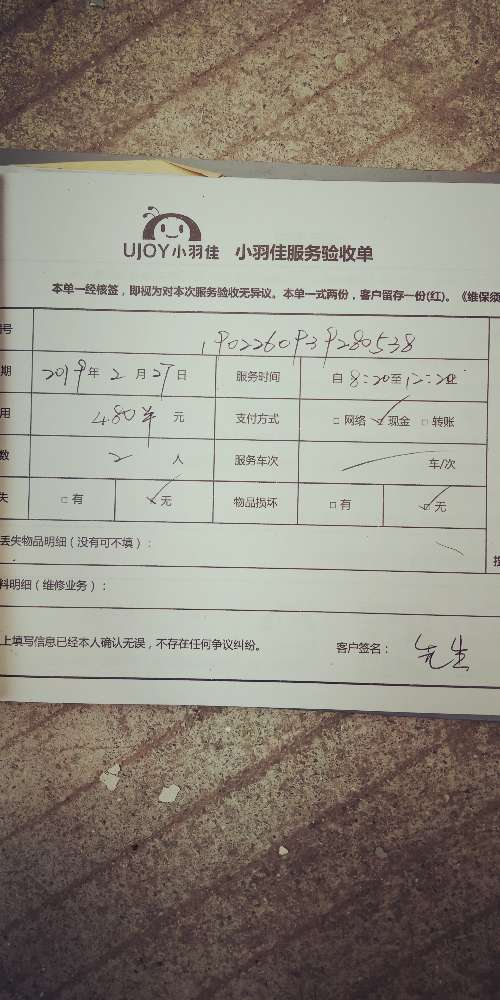 UJOY小羽佳 小羽佳服务验收单
本单一经核签，即视为对本次服务验收无异议。本单一式两份，客户留存一份(红)。《维保须
号 1902260939280538
期 2019年 2 月 27 日 服务时间 自 8:20至12:20
用 480 元 支付方式 □网络 ☑现金 □转账
数 2 人 服务车次 车/次
失 □有 ☑无 物品损坏 □有 ☑无
丢失物品明细（没有可不填）：
料明细（维修业务）：
上填写信息已经本人确认无误，不存在任何争议纠纷。 客户签名： 先生